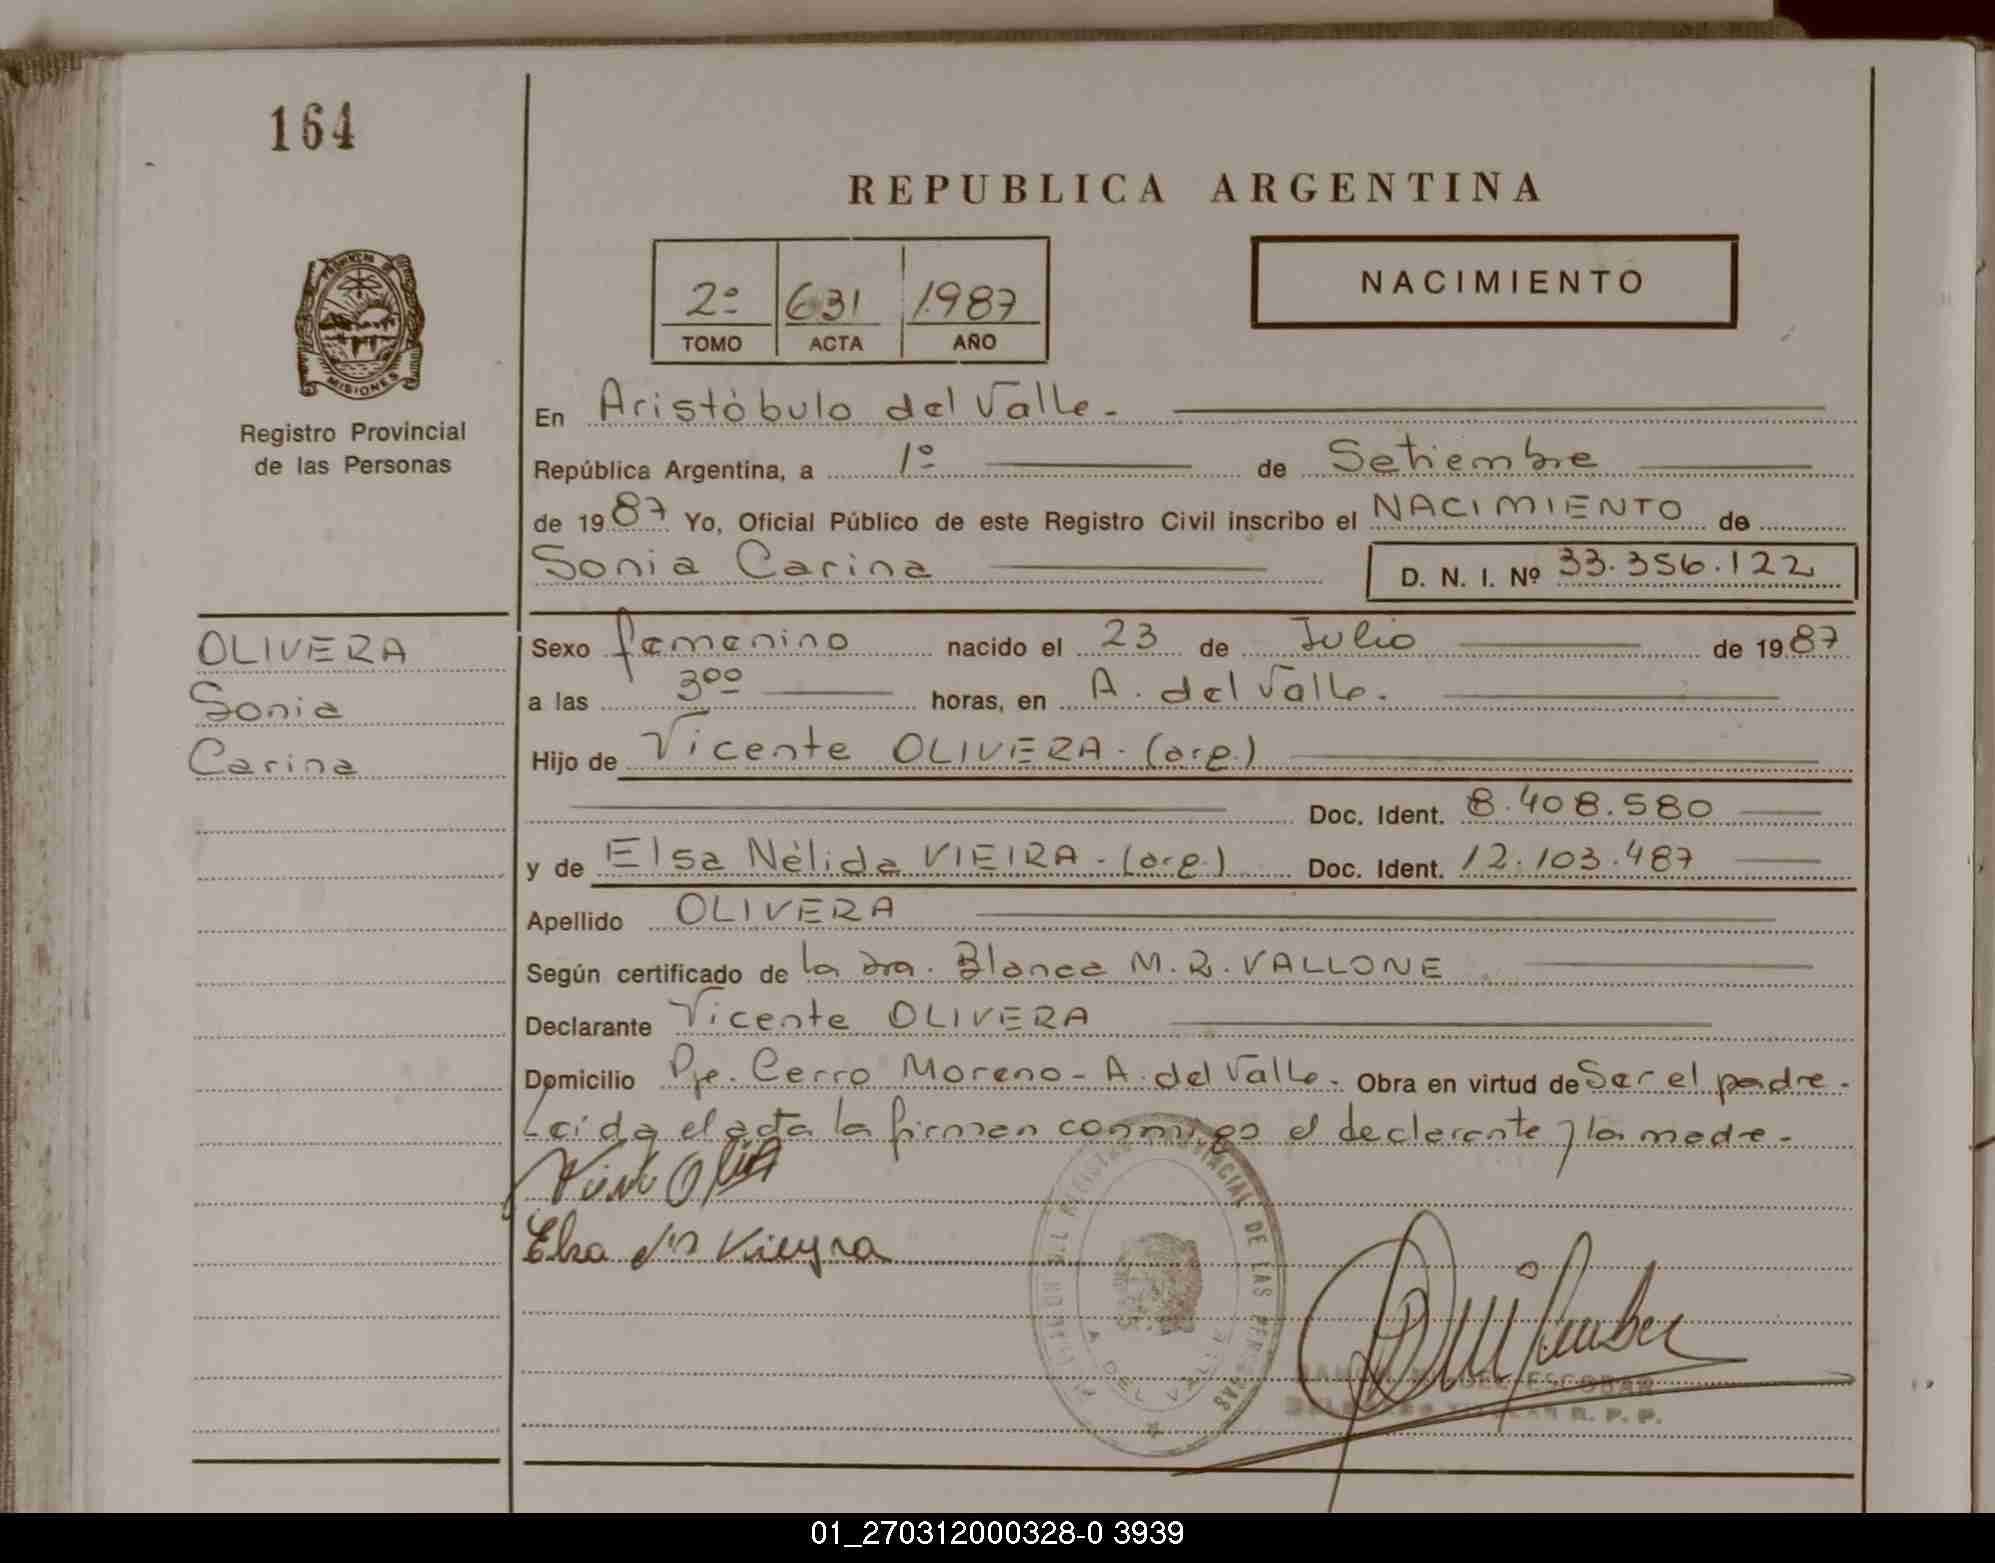 164
REPUBLICA ARGENTINA
PROVINCIA DE
MISIONES
Registro Provincial
de las Personas
2º 631 1987
TOMO ACTA AÑO
NACIMIENTO
En Aristóbulo del Valle.-
República Argentina, a 1º de Setiembre
de 1987 Yo, Oficial Público de este Registro Civil inscribo el NACIMIENTO de
Sonia Carina D. N. I. Nº 33.356.122
OLIVERA
Sonia
Carina
Sexo femenino nacido el 23 de Julio de 1987
a las 3ºº horas, en A. del Valle.
Hijo de Vicente OLIVERA.(arg.)
Doc. Ident. 8.408.580
y de Elsa Nélida VIEIRA.-(arg.) Doc. Ident. 12.103.487
Apellido OLIVERA
Según certificado de la Dra. Blanca M. R. VALLONE
Declarante Vicente OLIVERA
Domicilio Pje. Cerro Moreno - A. del Valle. Obra en virtud de Ser el padre.-
Leída el acta la firman conmigo el declarante y la madre.-
Elsa Vieyra
REGISTRO PROVINCIAL DE LAS PERSONAS
A. DEL VALLE
ESCOBAR
R. P. P.
01_270312000328-0 3939